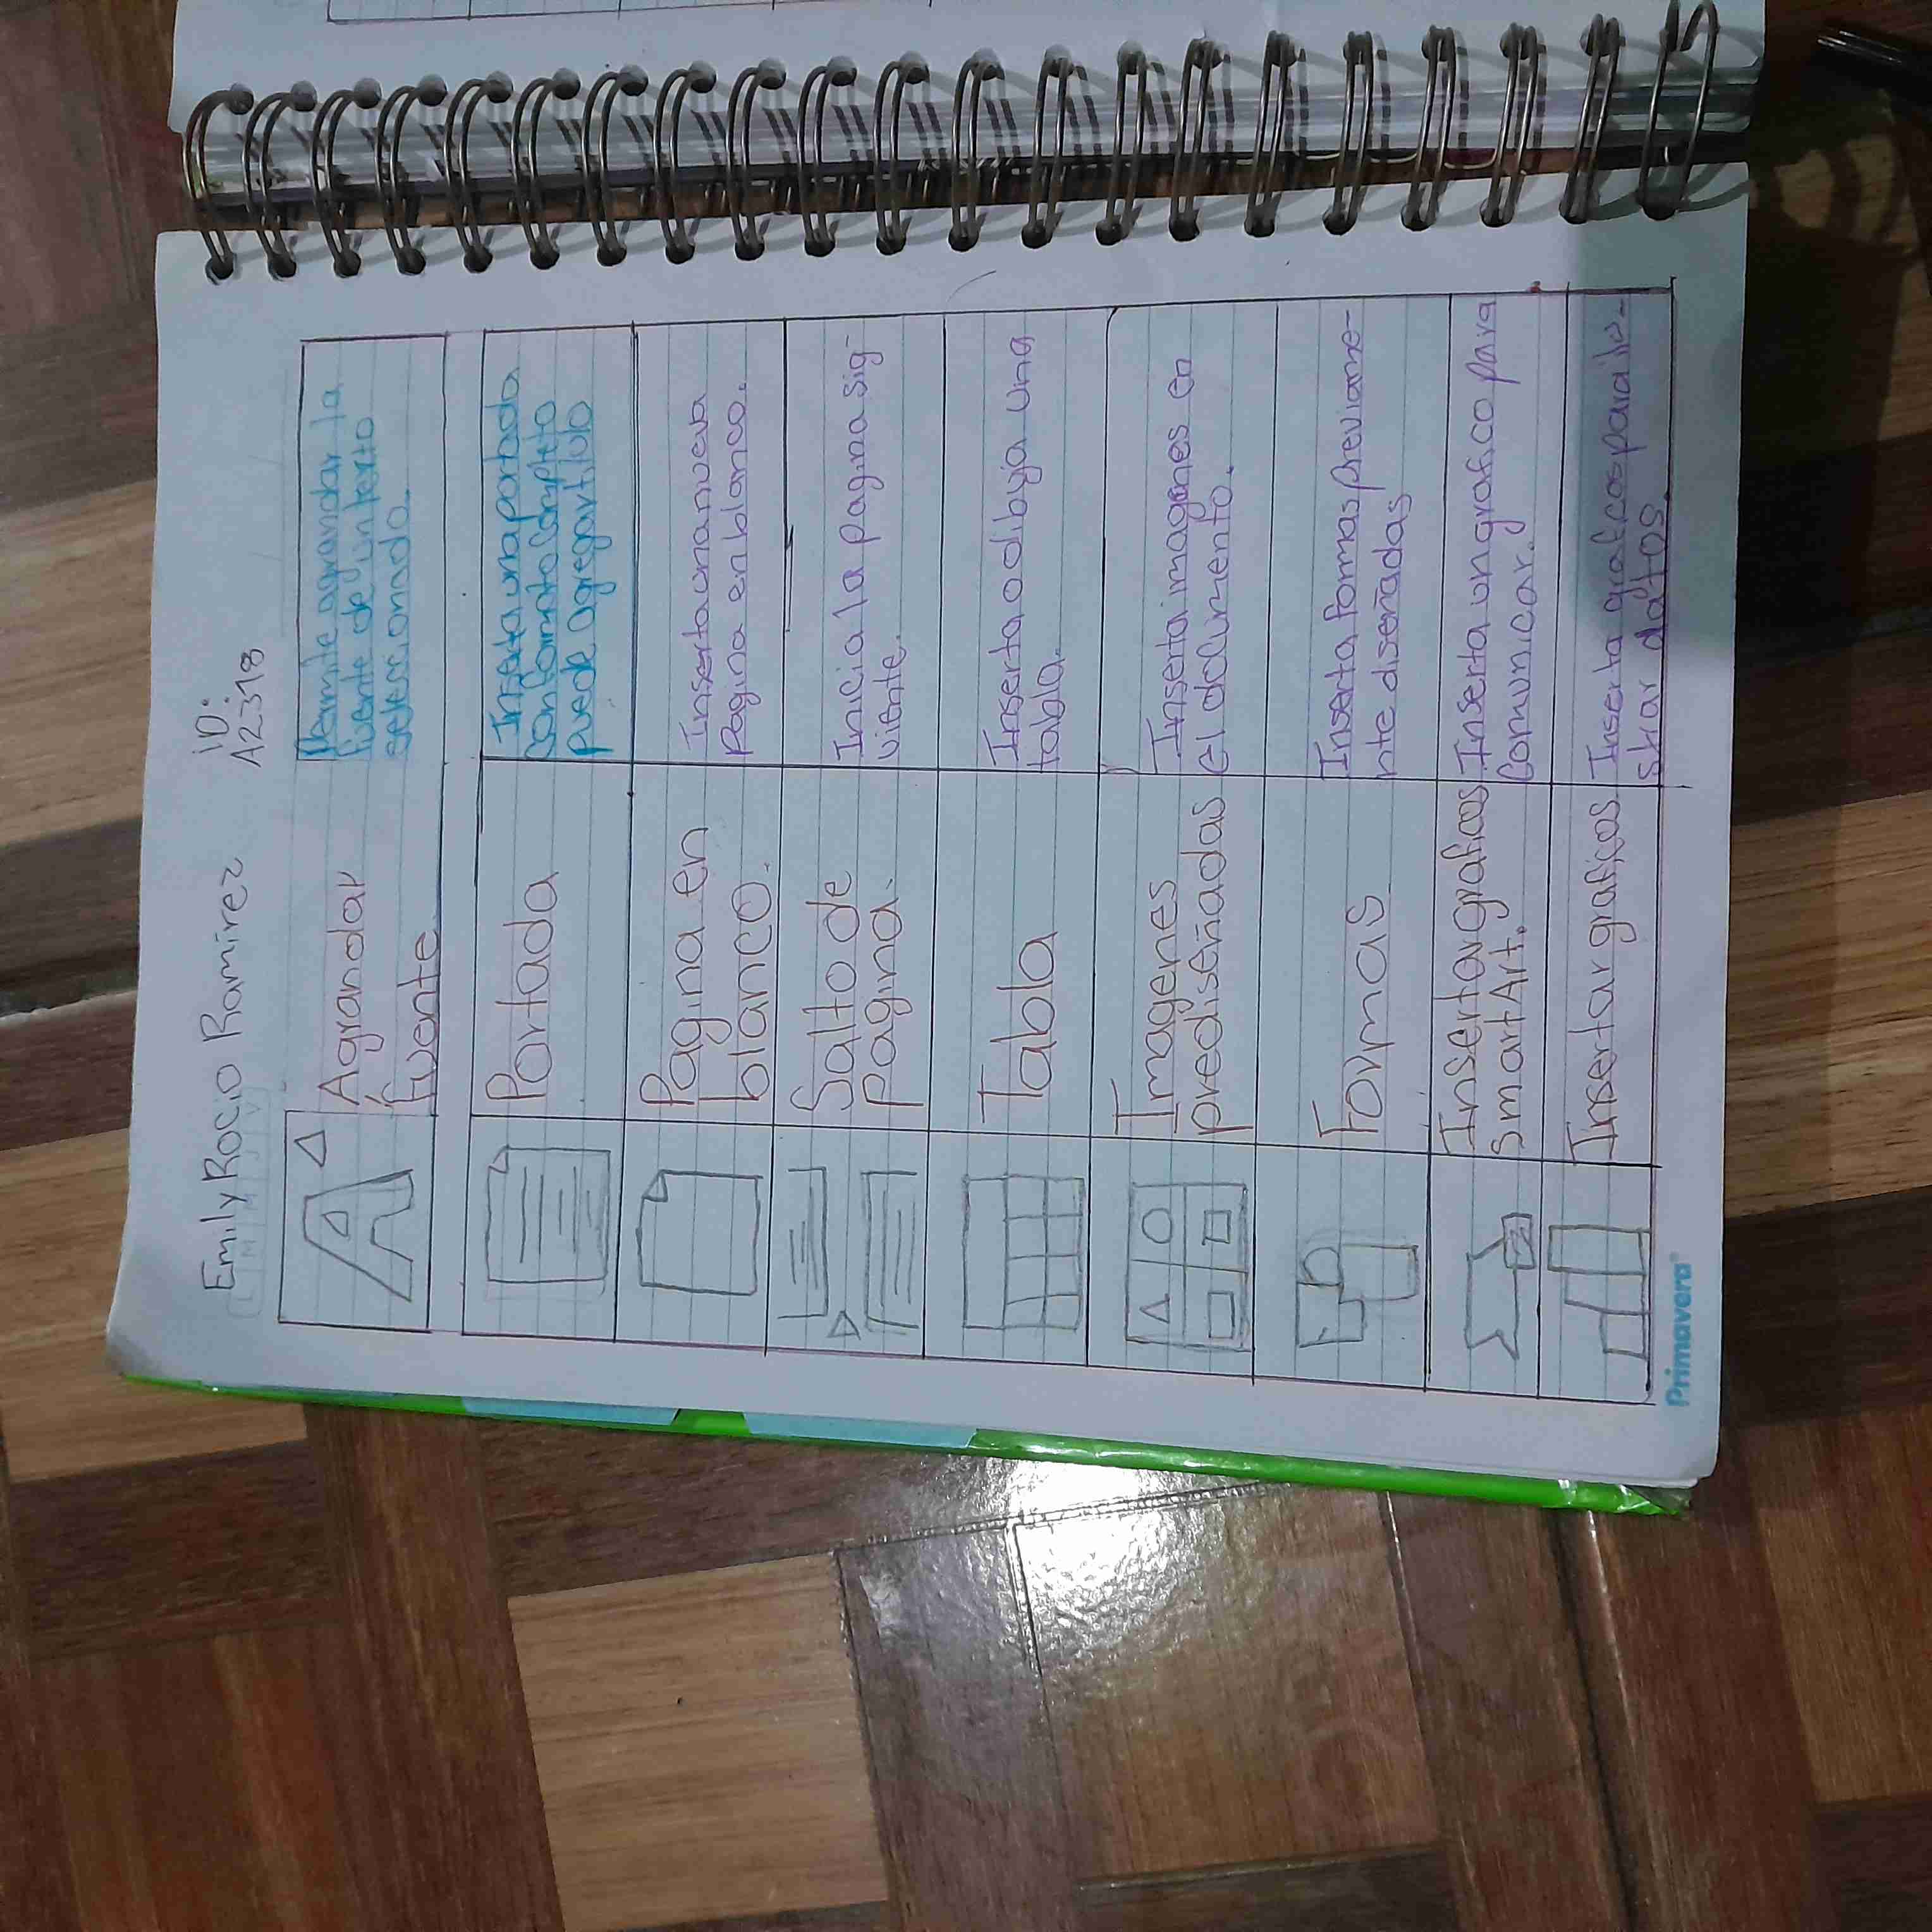 Emily Rocio Ramirez
iD:
A23718
Agrandar
fuente
Permite agrandar la
fuente de un texto
seleccionado.
Portada
Inserta una portada
con formato completo
puede agregar titulo
Pagina en
blanco.
Inserta una nueva
Pagina en blanco.
Salto de
pagina.
Inicia la pagina sig-
uiente.
Tabla
Inserta o dibuja una
tabla.
Imagenes
prediseñadas
Inserta imagenes en
el documento.
Formas
Inserta formas previame-
nte diseñadas
Insertar graficos
SmartArt.
Inserta un grafico para
Comunicar.
Insertar graficos
Inserta graficos para ilu-
strar datos.
Primavera